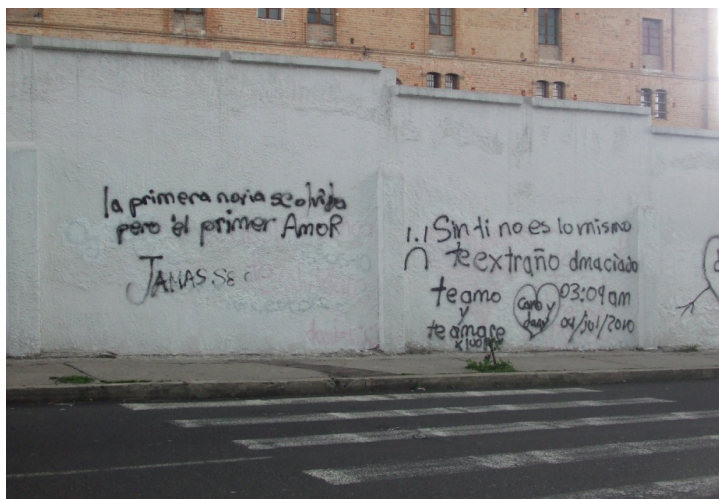 la primera novia se olvida
pero el primer AmoR
JAMAS SE
Sin ti no es lo mismo
te extraño dmaciado
te amo
y
te amare
Caro y
03:09 am
04/jul/2010